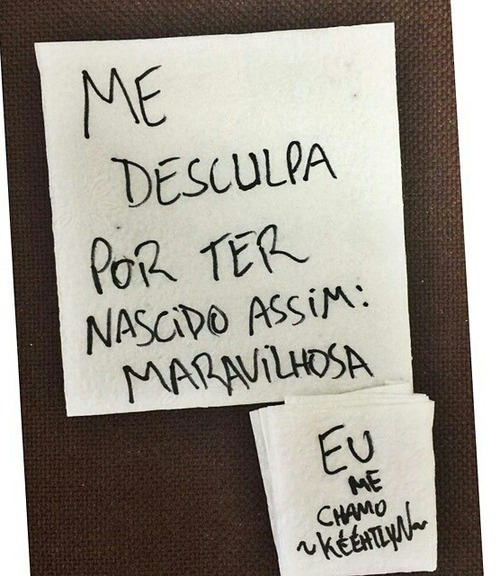 ME
DESCULPA
POR TER
NASCiDO ASSiM:
MARAViLHOSA
EU
ME
CHAMO
~KÉÉHTLYN~